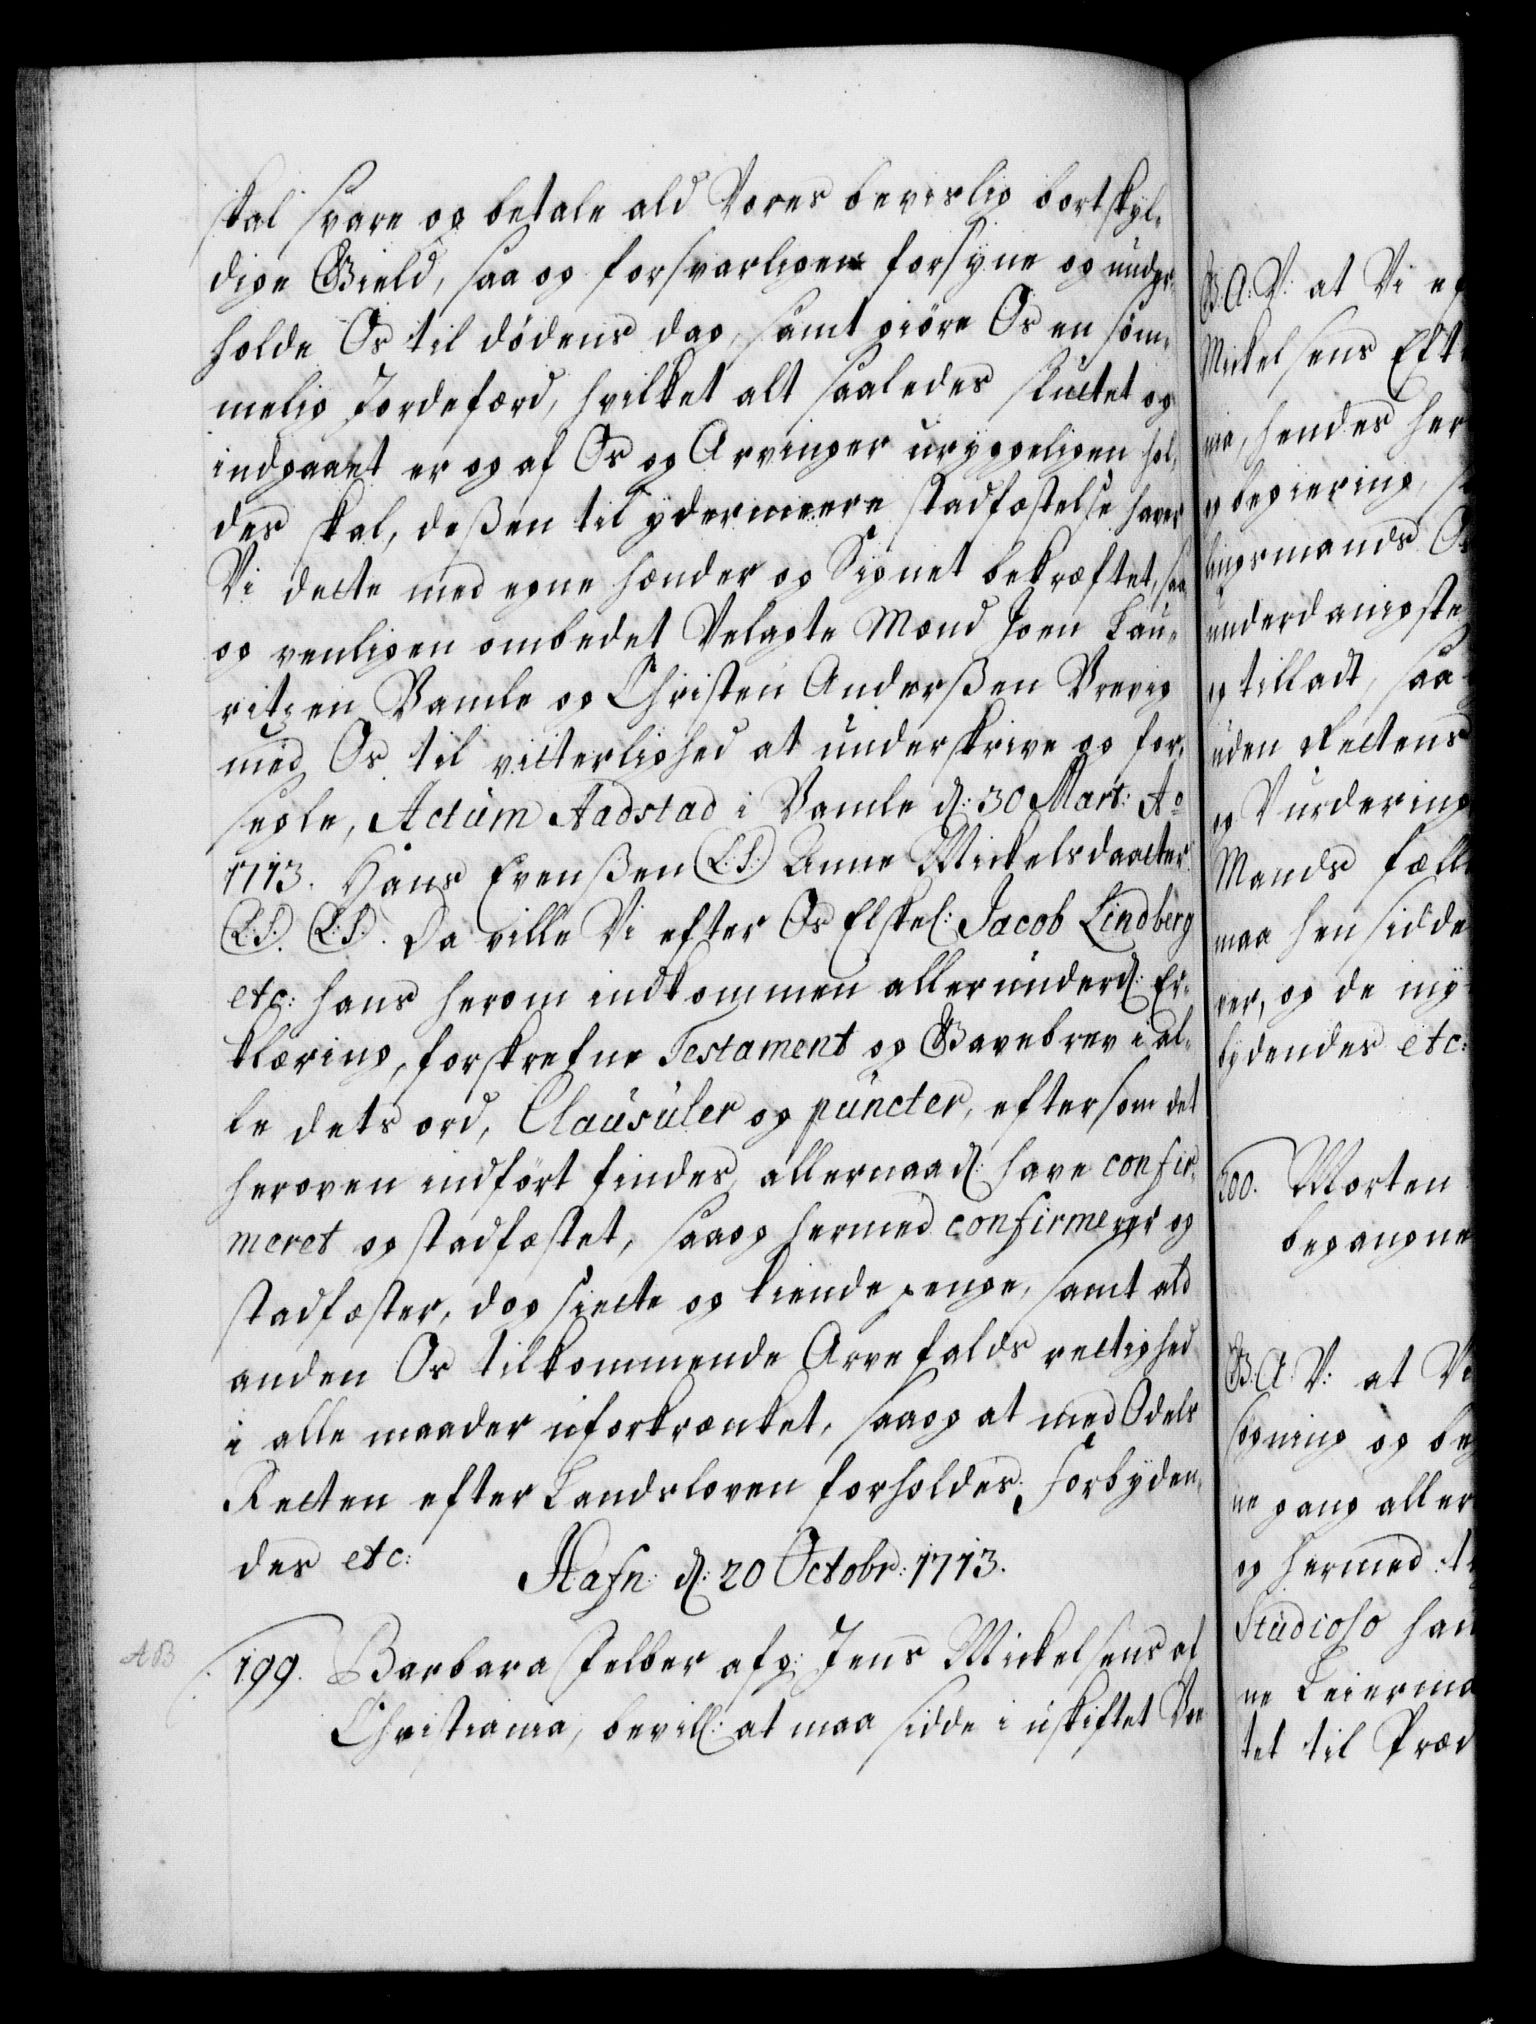 skal svare og betale ald Vores bevislig bortskyl-
dige Gield, saa og forsvarligen forsyne og under-
holde Os til dödens dag, samt giöre Os en söm-
melig Jordefærd, hvilket alt saaledes sluttet og
indgaaet er og af Os og Arvinger uryggeligen hol-
des skal, deßen til ydermeere stadfæstelse haver
Vi dette med egne hænder og Signet bekræftet, saa
og venligen ombedet Velagte Mænd Joen Lau-
ritzen Vamle og Christen Anderßen Vrevig
med Os til vitterlighed at underskrive og for-
segle, Actum Aadstad i Bamle d: 30 Mart: Ao
1713. Hans Evenßen (L.S.) Anne Mickelsdaatter
(L.S.) (L.S.). Da ville Vi efter Os Elskel: Jacob Lindberg
etc: hans herom indkommen allerunderd: Er-
klæring, forskrefne Testament og Gavebrev i al-
le dets ord, Clausuler og puncter, eftersom det
heroven indfört findes, allernaad: have confir-
meret og stadfæstet, saa og hermed confirmerer og
stadfæster, dog siette og tiende penge, samt ald
anden Os tilkommende Arvefalds rettighed
i alle maader uforkrænket, saa og at med Odels
Retten efter Landsloven forholdes; Forbyden-
des etc:
Hafn: d: 20 Octobr: 1713.
AB
199. Barbara Felber afg: Jens Mickelsens af
Christiania, bevill: at maa sidde i uskiftet Boe
B. A. V: at Vi ef
Mickelsens Eft
nia, hendes her
og begiering, s
lingsmands
underdanigste
og tilladt, saa
uden Rettens
og Vurdering
Mands fæll
maa hensidde
ver, og de my
bydendes etc:
200. Morten
begangne
B. A. V: at Vi
søgning og beg
ne gang aller
og hermed t
Studioso han
ne Leierma
tet til Præd